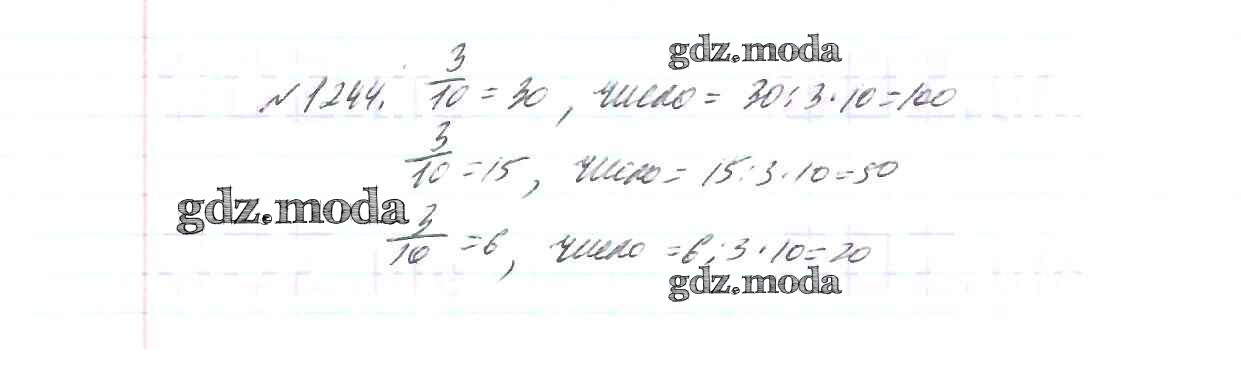 gdz.moda
№1244. 3/10 = 30, число = 30:3·10=100
3/10 = 15, число = 15:3·10=50
gdz.moda
3/10 = 6, число = 6:3·10=20
gdz.moda